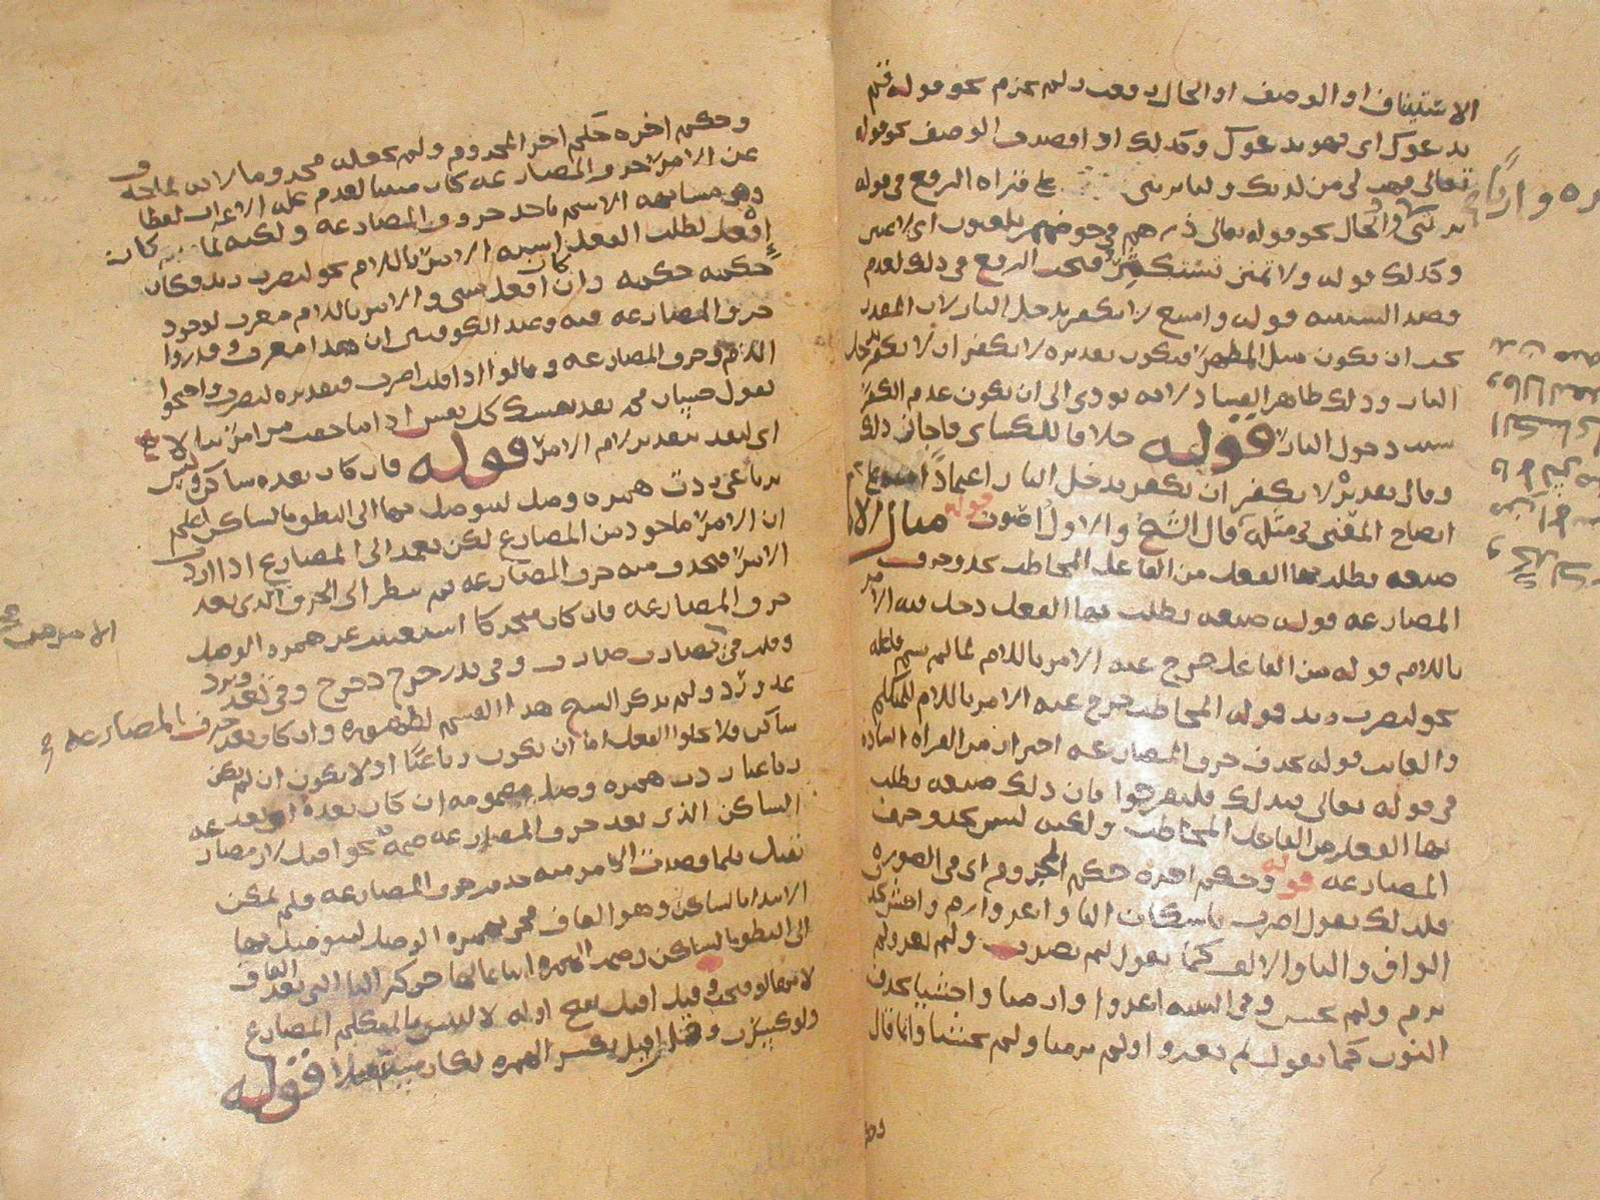 الاستيناف او الوصف او الحال رفعت ولم تجزم نحو قوله قم
يدعوك اى فهو يدعوك وكذلك اذا قصدت الوصف نحو قوله
تعالى فهب لى من لدنك وليا يرثنى على قراة الرفع فى قوله
يرثنى والحال نحو قوله تعالى ذرهم فى خوضهم يلعبون اى لاعبين
وكذلك قوله ولا تمنن تستكثر فيجب الرفع فى ذلك لعدم
قصد السببيه قوله وامتنع لا تكفر تدخل النار لان المقدر
يجب ان يكون مثل المظهر فيكون تقديره لا تكفر ان لا تكفر تدخل
النار وذلك ظاهر الفساد لانه يودى الى ان يكون عدم الكفر
سبب دخول النار قوله خلافا للكسائى فاجاز ذلك
وقال تقديره لا تكفر ان تكفر تدخل النار اعتمادا
ايضاح المعنى فى مثله قال الشيخ والاول اقوى قوله مثال الامر
صيغه يطلب بها الفعل من الفاعل المخاطب بحذف حرف
المضارعه قوله صيغه يطلب بها الفعل دخل فيه الامر
باللام قوله من الفاعل خرج عنه الامر باللام لما لم يسم فاعله
نحو ليضرب زيد قوله المخاطب خرج عنه الامر باللام للمتكلم
والغايب قوله بحذف حرف المضارعه احتراز من القراه الشاذه
فى قوله تعالى فبذلك فلتفرحوا فان ذلك صيغه يطلب
بها الفعل من الفاعل المخاطب ولكنه ليس بحذف حرف
المضارعه قوله وحكم اخره حكم المجزوم اى فى الصوره
فلذلك تقول اضرب باسكان البا واغز وارم واخش بحذف
الواو واليا والالف كما تقول لم يضرب ولم يغز ولم
يرم ولم يخش وفى التثنيه اغزوا وارميا واخشيا بحذف
النون كما تقول لم يغزوا ولم يرميا ولم يخشيا وانما قال
وحكم اخره حكم اخر المجزوم ولم يجعله مجزوما لان
عن الامر حرف المضارعه كان مبنيا لعدم عله الاعراب لفظا
وهى مشابهه الاسم باحد حروف المضارعه ولكنه لما كان
افعل لطلب الفعل اشبه الامر باللام نحو ليضرب زيد فكان
حكمه حكمه وان كان افعل مبنى والامر باللام معرب لوجود
حرف المضارعه فيه وعند الكوفيين ان هذا معرب وقدروا
اللام وحرف المضارعه وقالوا اذا قلت اضرب فتقديره لتضرب واحتجوا
بقول حسان محمد تفد نفسك كل نفس اذا ما خفت من امر تبالا
اى لتفد بتقدير لام الامر قوله فان كان بعده ساكن وليس
برباعى زدت همزه وصل ليوصل بها الى النطق بالساكن اعلم
ان الامر ماخوذ من المضارع لكن تعمد الى المضارع اذا اردت
الامر فتحذف منه حرف المضارعه ثم تنظر الى الحرف الذى بعد
حرف المضارعه فان كان متحركا استغنيت عن همزه الوصل
وقلت فى تضارب ضارب وفى تدحرج دحرج وفى تعد وترد
عد ورد ولم يذكر الشيخ هذا القسم لظهوره وان كان بعد حرف المضارعه
ساكن فلا يخلوا الفعل اما ان يكون رباعيا او لا يكون ان لم يكن
رباعيا زدت همزه وصل مضمومه ان كان بعده اى بعد
الساكن الذى بعد حرف المضارعه ضمه نحو اقتل لان مضارعه
تقتل فلما قصدت الامر منه حذفت حرف المضارعه ولم يمكن
الابتدا بالساكن وهو القاف فجى بهمزه الوصل ليتوصل بها
الى النطق بالساكن وضمت الهمزه اتباعا لها حركه التا التى بعد القاف
لانها لو فتحت وقيل اقتل بفتح اوله لالتبس بالمتكلم المضارع
ولو كسرت وقيل اقتل بكسر الهمزه لكان مستثقلا قوله